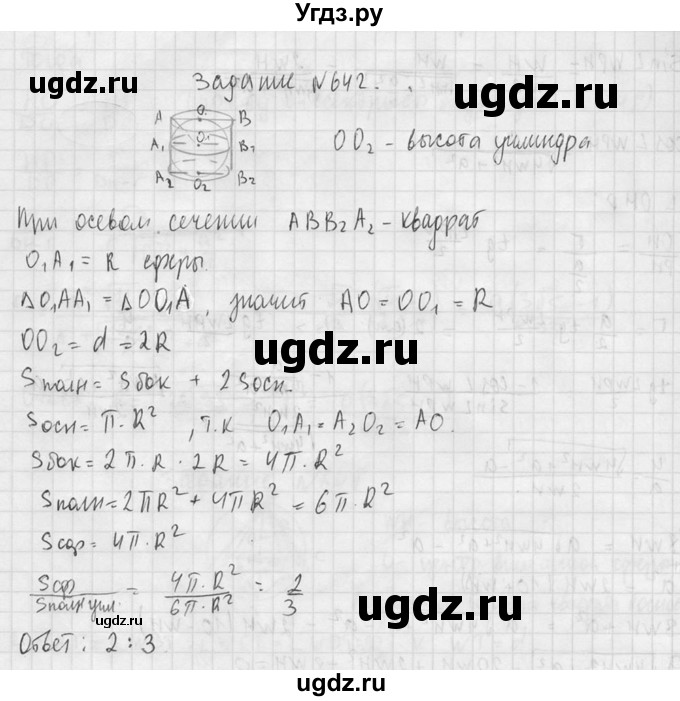 Угдз.ру
Задание №642.
ugdz.ru
A O B
A₁ O₁ B₁
A₂ O₂ B₂
OO₂ - высота цилиндра
При осевом сечении ABB₂A₂ - квадрат
O₁A₁ = R сферы.
ugdz.ru
ΔO₁AA₁ = ΔOO₁A, значит AO = OO₁ = R
OO₂ = d = 2R
ugdz.ru
Sполн = Sбок + 2Sосн.
Sосн = π·R², т.к O₁A₁ = A₂O₂ = AO.
ugdz.ru
Sбок = 2π·R·2R = 4π·R²
Sполн = 2πR² + 4πR² = 6π·R²
Sсф = 4π·R²
Sсф/Sполн цил = 4π·R²/6π·R² = 2/3
ugdz.ru
ugdz.ru
Ответ: 2:3
ugdz.ru